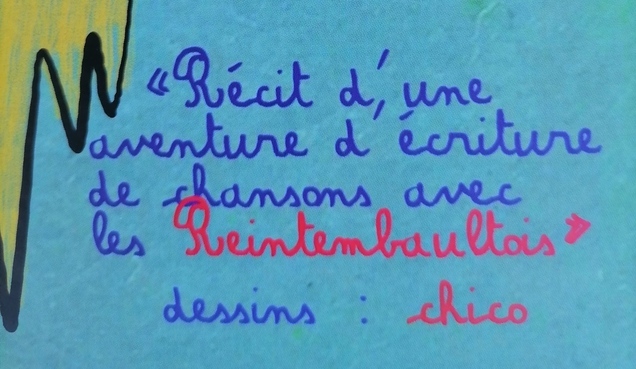 « Récit d', une
aventure d' écriture
de chansons avec
les Reintembaultois »
dessins : chico